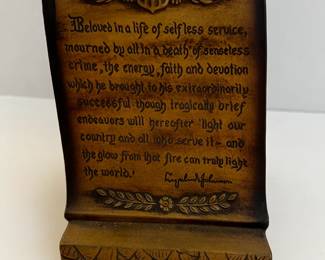 Beloved in a life of selfless service,
mourned by all in a death of senseless
crime, the energy, faith and devotion
which he brought to his extraordinarily
successful though tragically brief
endeavors will hereafter 'light our
country and all who serve it — and
the glow from that fire can truly light
the world.' Lyndon B. Johnson